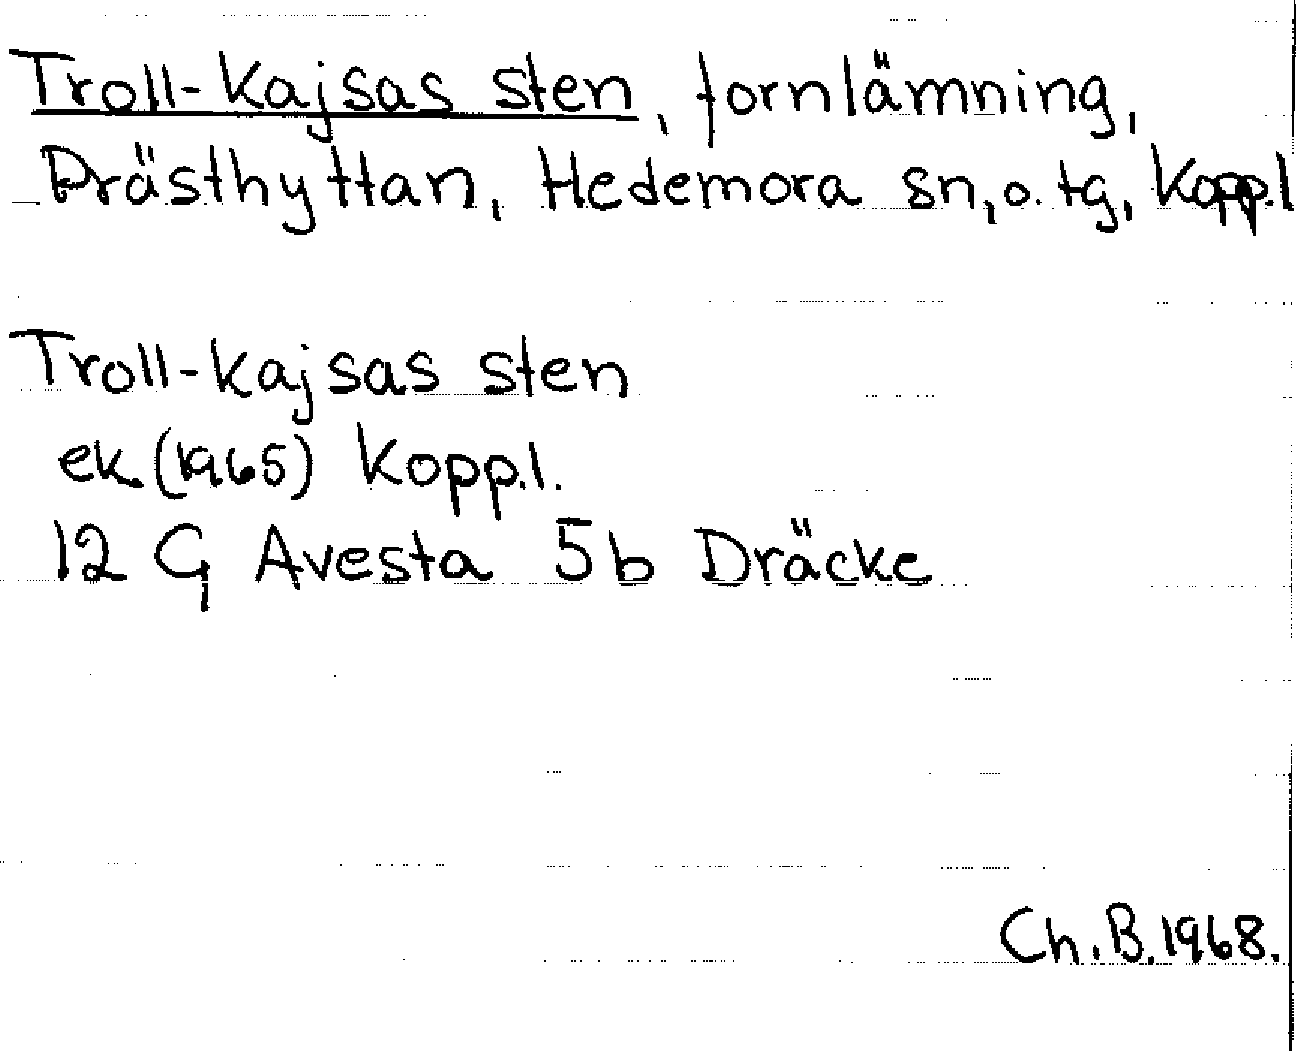 Troll-Kajsas sten, fornlämning,
Prästhyttan, Hedemora sn, o. tg, Kopp.l
Troll-Kajsas sten
ek. (1965) Kopp.l.
12 G Avesta 5b Dräcke
Ch. B. 1968.